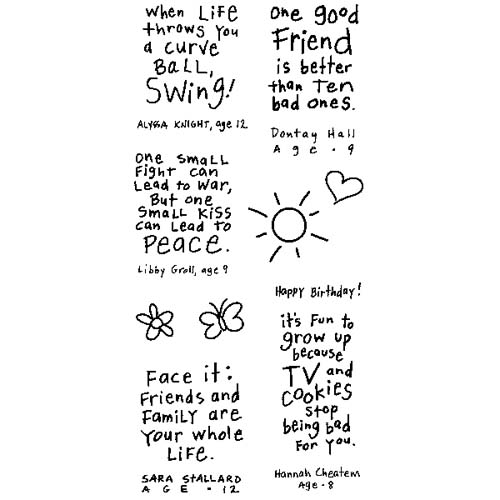 When Life
throws you
a curve
Ball,
Swing!
Alyssa Knight, age 12
One good
Friend
is better
than Ten
bad ones.
Dontay Hall
Age - 9
One Small
Fight can
Lead to War,
But one
Small Kiss
can Lead to
Peace.
Libby Groll, age 9
Happy Birthday!
it's Fun to
grow up
because
TV and
Cookies
stop
being bad
For you.
Hannah Cheatem
Age - 8
Face it:
Friends and
Family are
Your whole
Life.
Sara Stallard
AGE - 12